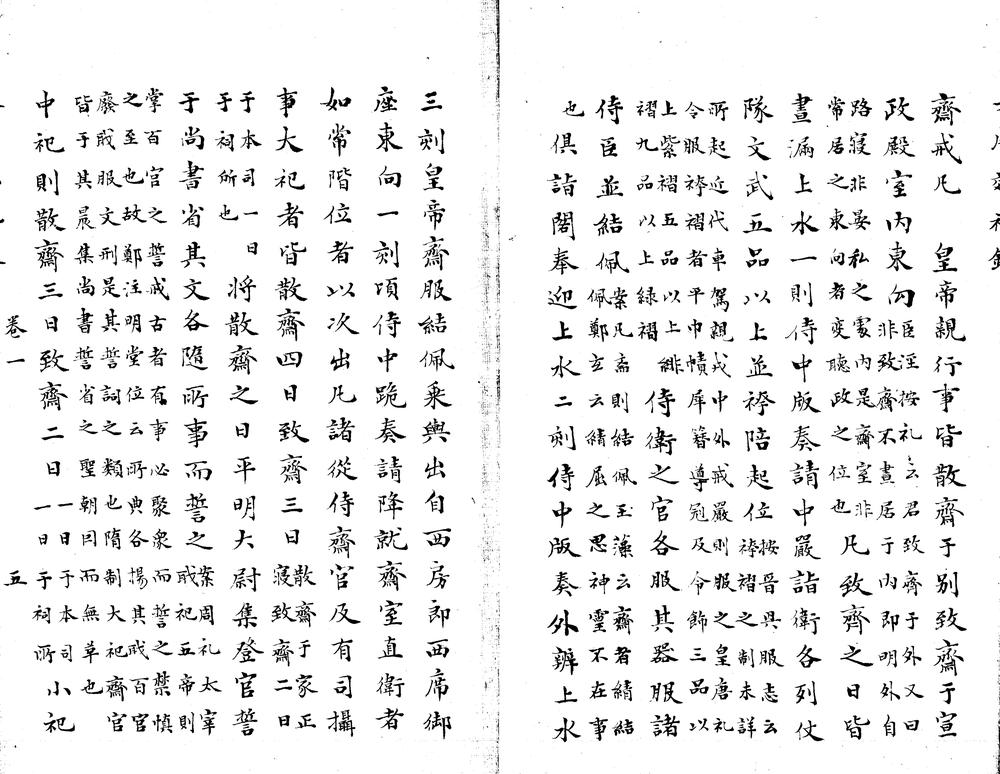 齋戒凡　皇帝親行事皆散齋于别致齋于宣
政殿室内東向
臣涇按礼云君致齋于外又曰
非致齋不晝居于内即明外自
路寢非晏私之䖏内是齋室非
常居之東向者变聽政之位也
凡致齊之日皆
晝漏上水一則侍中版奏請中嚴詣衛各列仗
隊文武五品以上並袴陪起位
按晋具服志云
袴褶之制未詳
所起近代車駕親戎中外戒嚴則服之皇唐礼
令服袴褶者平巾幘犀簪導冠及令飾三品以
上紫褶五品以上緋
褶九品以上緑褶
侍衛之官各服其器服諸
侍臣並結佩
案凡斋則結佩玉藻云齋者綪結
佩鄭玄云綪屈之思神靈不在事
也俱詣閤奉迎上水二刻侍中版奏外辨上水
三刻皇帝齋服結佩乘輿出自西房即西席御
座東向一刻頃侍中跪奏請降就齋室直衛者
如常階位者以次出凡諸從侍齋官及有司攝
事大祀者皆散齋四日致齋三日
散齋于家正
寢致齋二日
于本司一日
于祠所也
將散齋之日平明大尉集登官誓
于尚書省其文各隨所事而誓之
案周礼太宰
戒祀五帝則
掌百官之誓戒古者有事必聚衆而誓之禁慎
之至也故鄭注明堂位云所典各揚其戒百官
廢戝服文刑是其誓詞之類也隋制大祀齋官
皆于其晨集尚書誓省之聖朝因而無草也
中祀則散齋三日致齋二日
一日于本司
一日于祠所
小祀
卷一
五